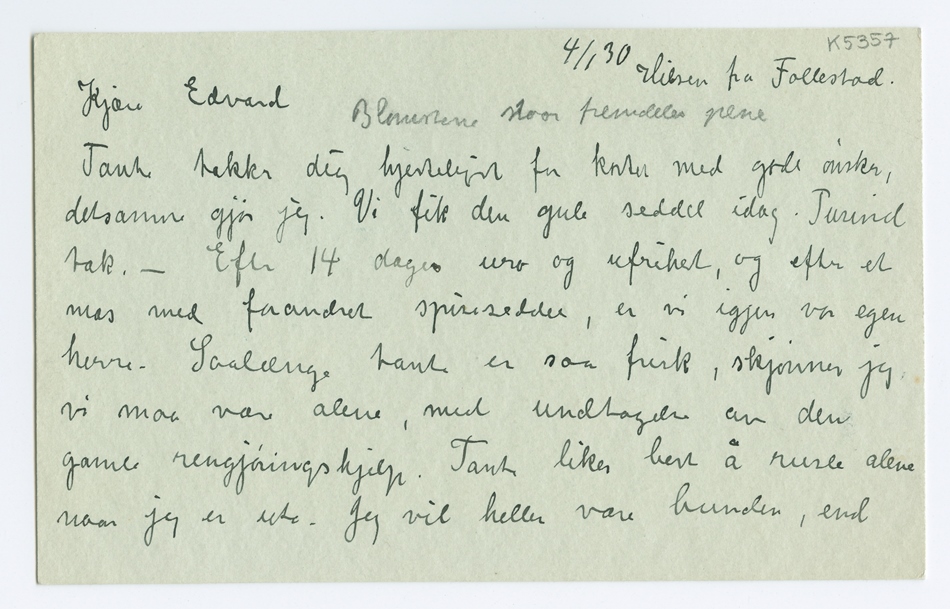 K5357
4/1 30 Hilsen fra Follestad.
Kjære Edvard
Blomsterne staar fremdeles pene
Tante takker dig hjerteligst for kortet med gode ønsker,
detsamme gjør jeg. Vi fik den gule seddel idag. Tusind
tak. — Efter 14 dages uro og ufrihet, og efter et
mas med forandret spiseseddel, er vi igjen vor egen
herre. Saalænge tante er saa frisk, skjønner jeg,
vi maa være alene, med undtagelse av den
gamle rengjøringshjelp. Tante likes best å rusle alene
naar jeg er ute. Jeg vil heller være bunden, end